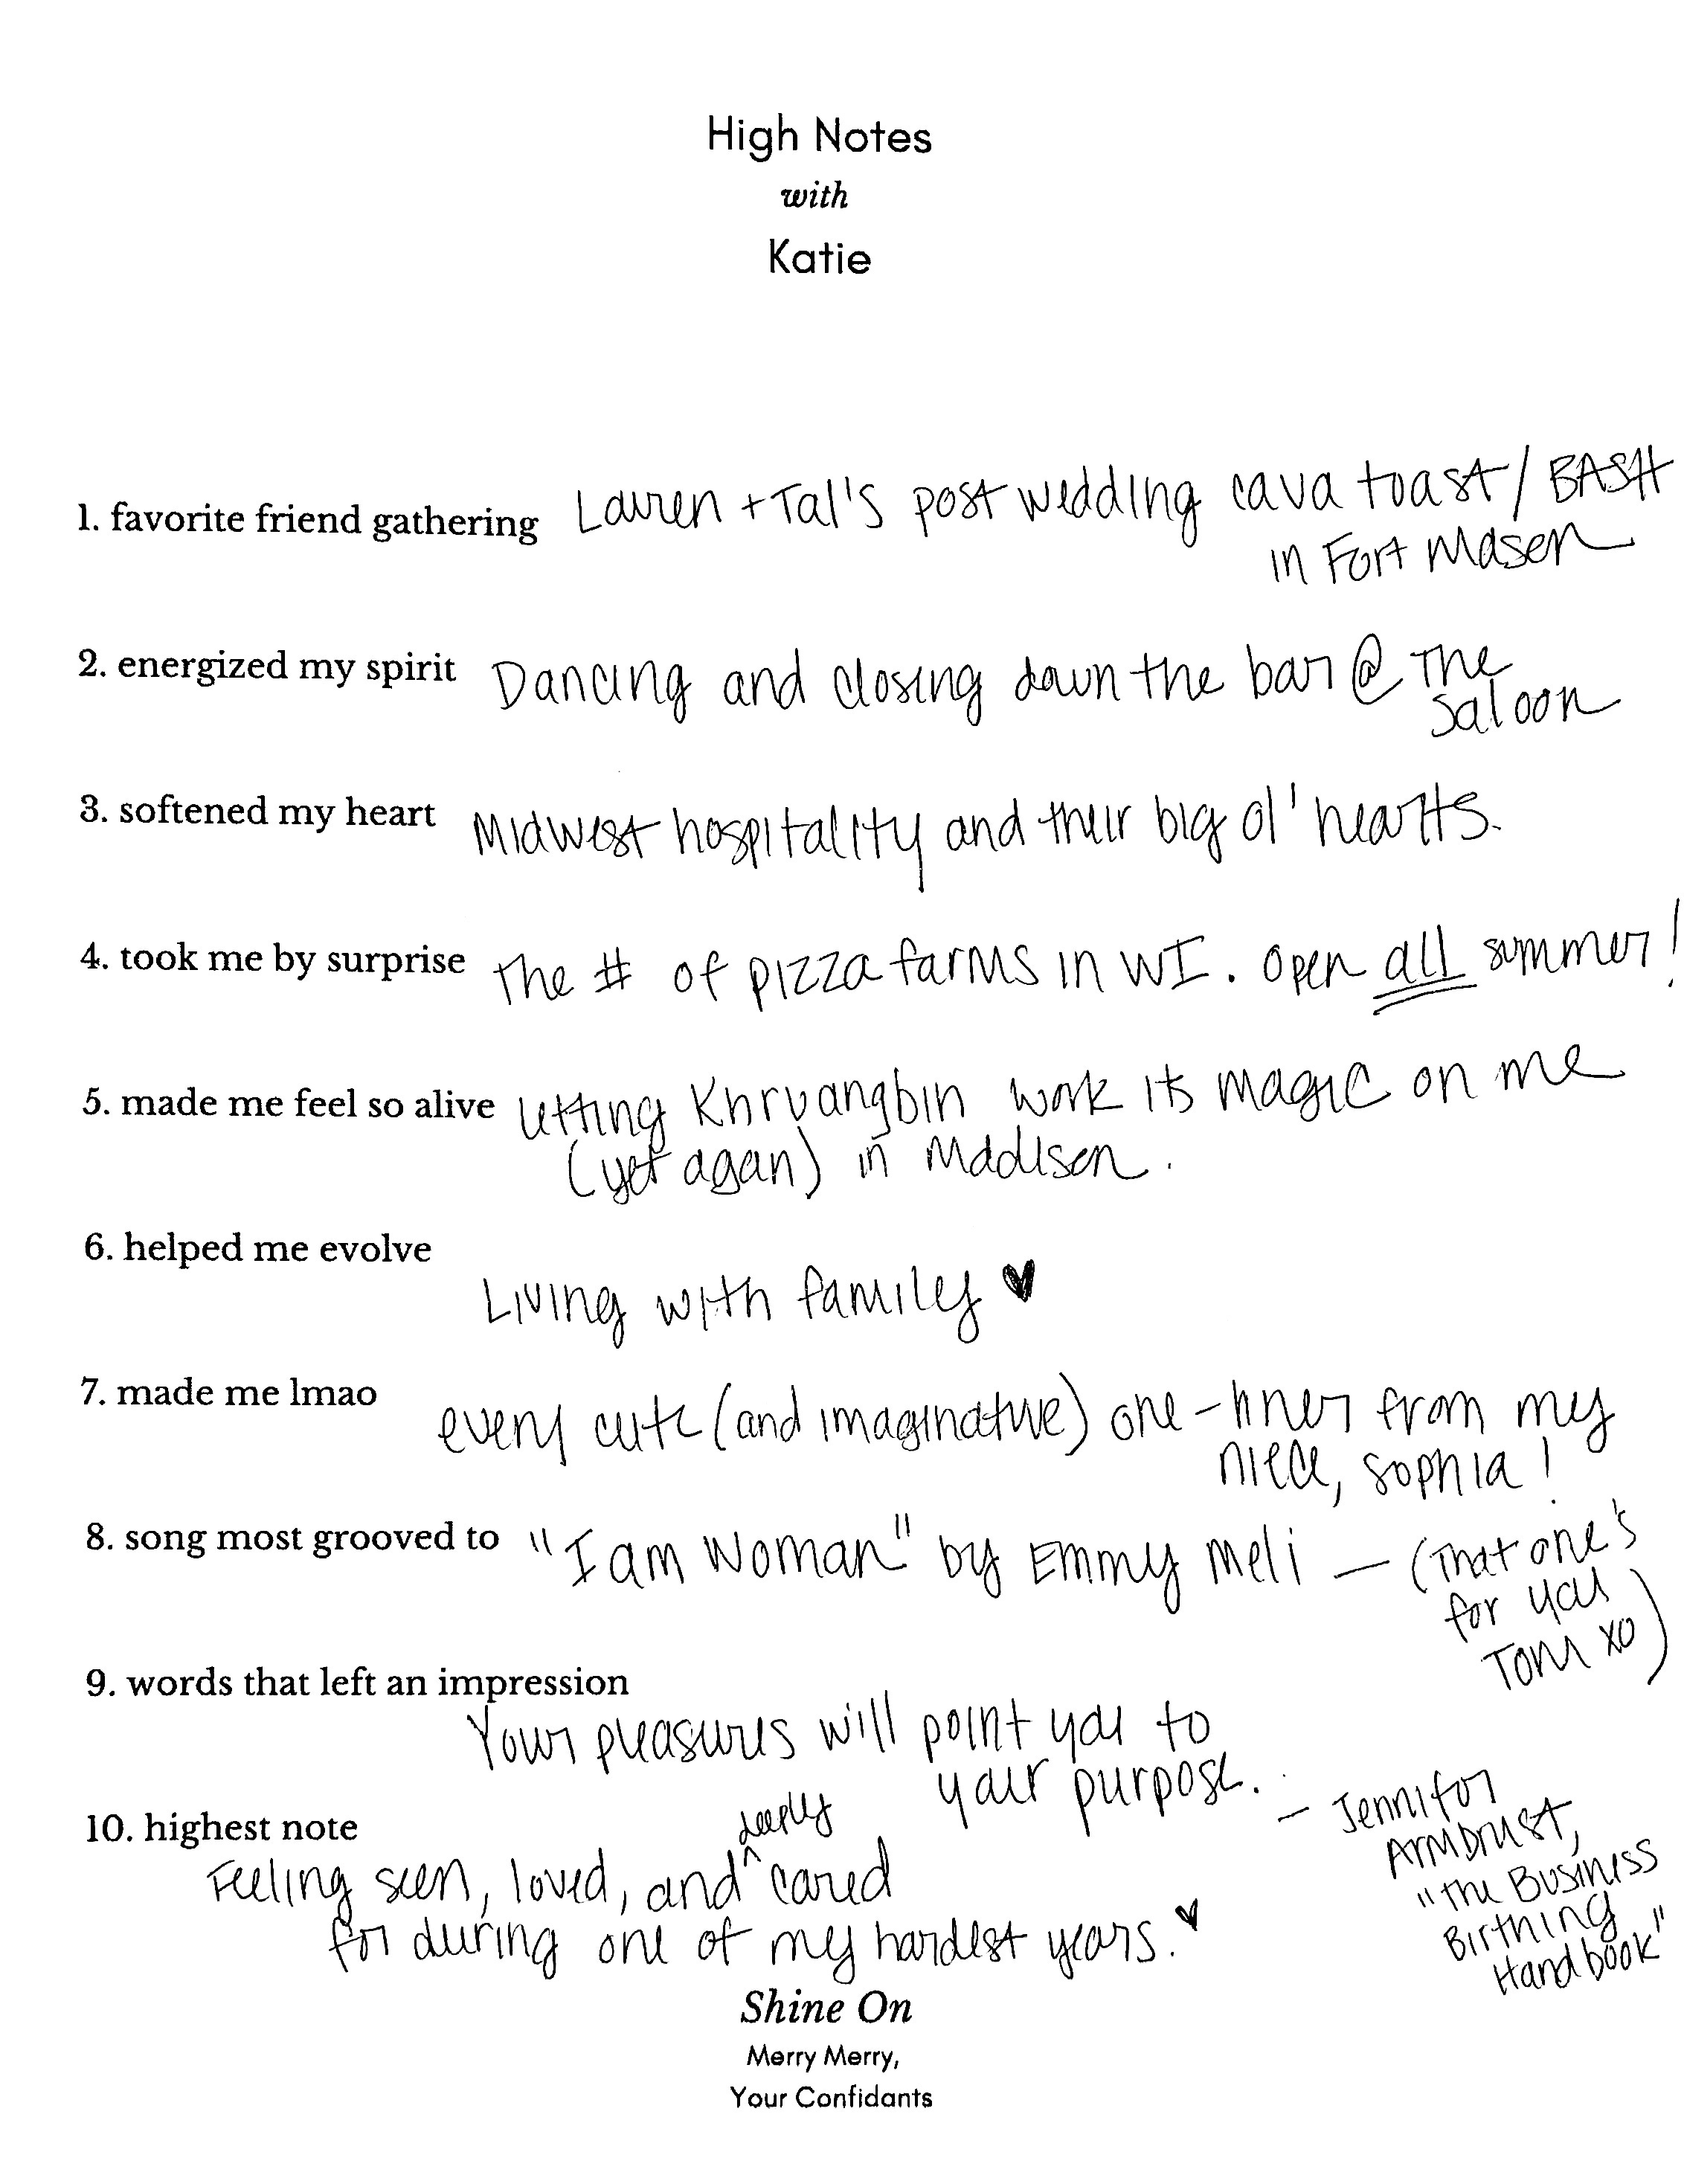 High Notes
with
Katie
1. favorite friend gathering Lauren + Tal's post wedding cava toast / BASH
in Fort Mason
2. energized my spirit Dancing and closing down the bar @ The
Saloon
3. softened my heart Midwest hospitality and their big ol' hearts.
4. took me by surprise The # of pizza farms in WI. Open all summer!
5. made me feel so alive letting Khruangbin work its magic on me
(yet again) in Madison.
6. helped me evolve
Living with family ♥
7. made me lmao every cute (and imaginative) one-liner from my
niece, Sophia!
8. song most grooved to "I am Woman" by Emmy Meli — (That one's
for you
Tom xo)
9. words that left an impression
Your pleasures will point you to
your purpose. - Jennifer
Armbrust,
"The Business
Birthing
Handbook"
10. highest note
Feeling seen, loved, and ^deeply cared
for during one of my hardest years. ♥
Shine On
Merry Merry,
Your Confidants